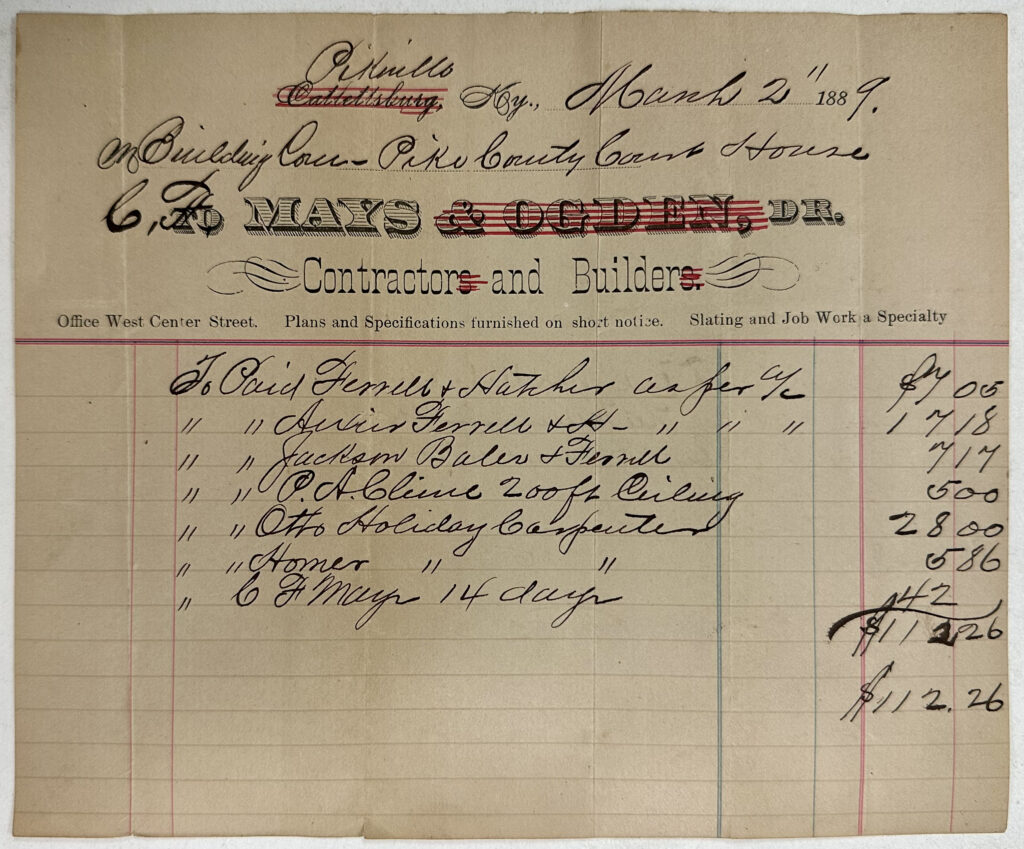 Pikeville
Cattettsburg, Ky., March 2" 1889.
M Building Com - Pike County Court House
C, F. To MAYS & OGDEN, DR.
Contractors and Builders.
Office West Center Street. Plans and Specifications furnished on short notice. Slating and Job Work a Specialty
To Paid Ferrell & Hatcher as per a/c $7 05
" " Ferrell & H- " " " 17 18
" " Jackson Bales & Ferrell 7 17
" " P. A. Cline 200 ft Ceiling 5 00
" " Otto Holiday Carpenter 28 00
" " Homer " " 5 86
" C F Mays 14 days 42
$112 26
$112.26